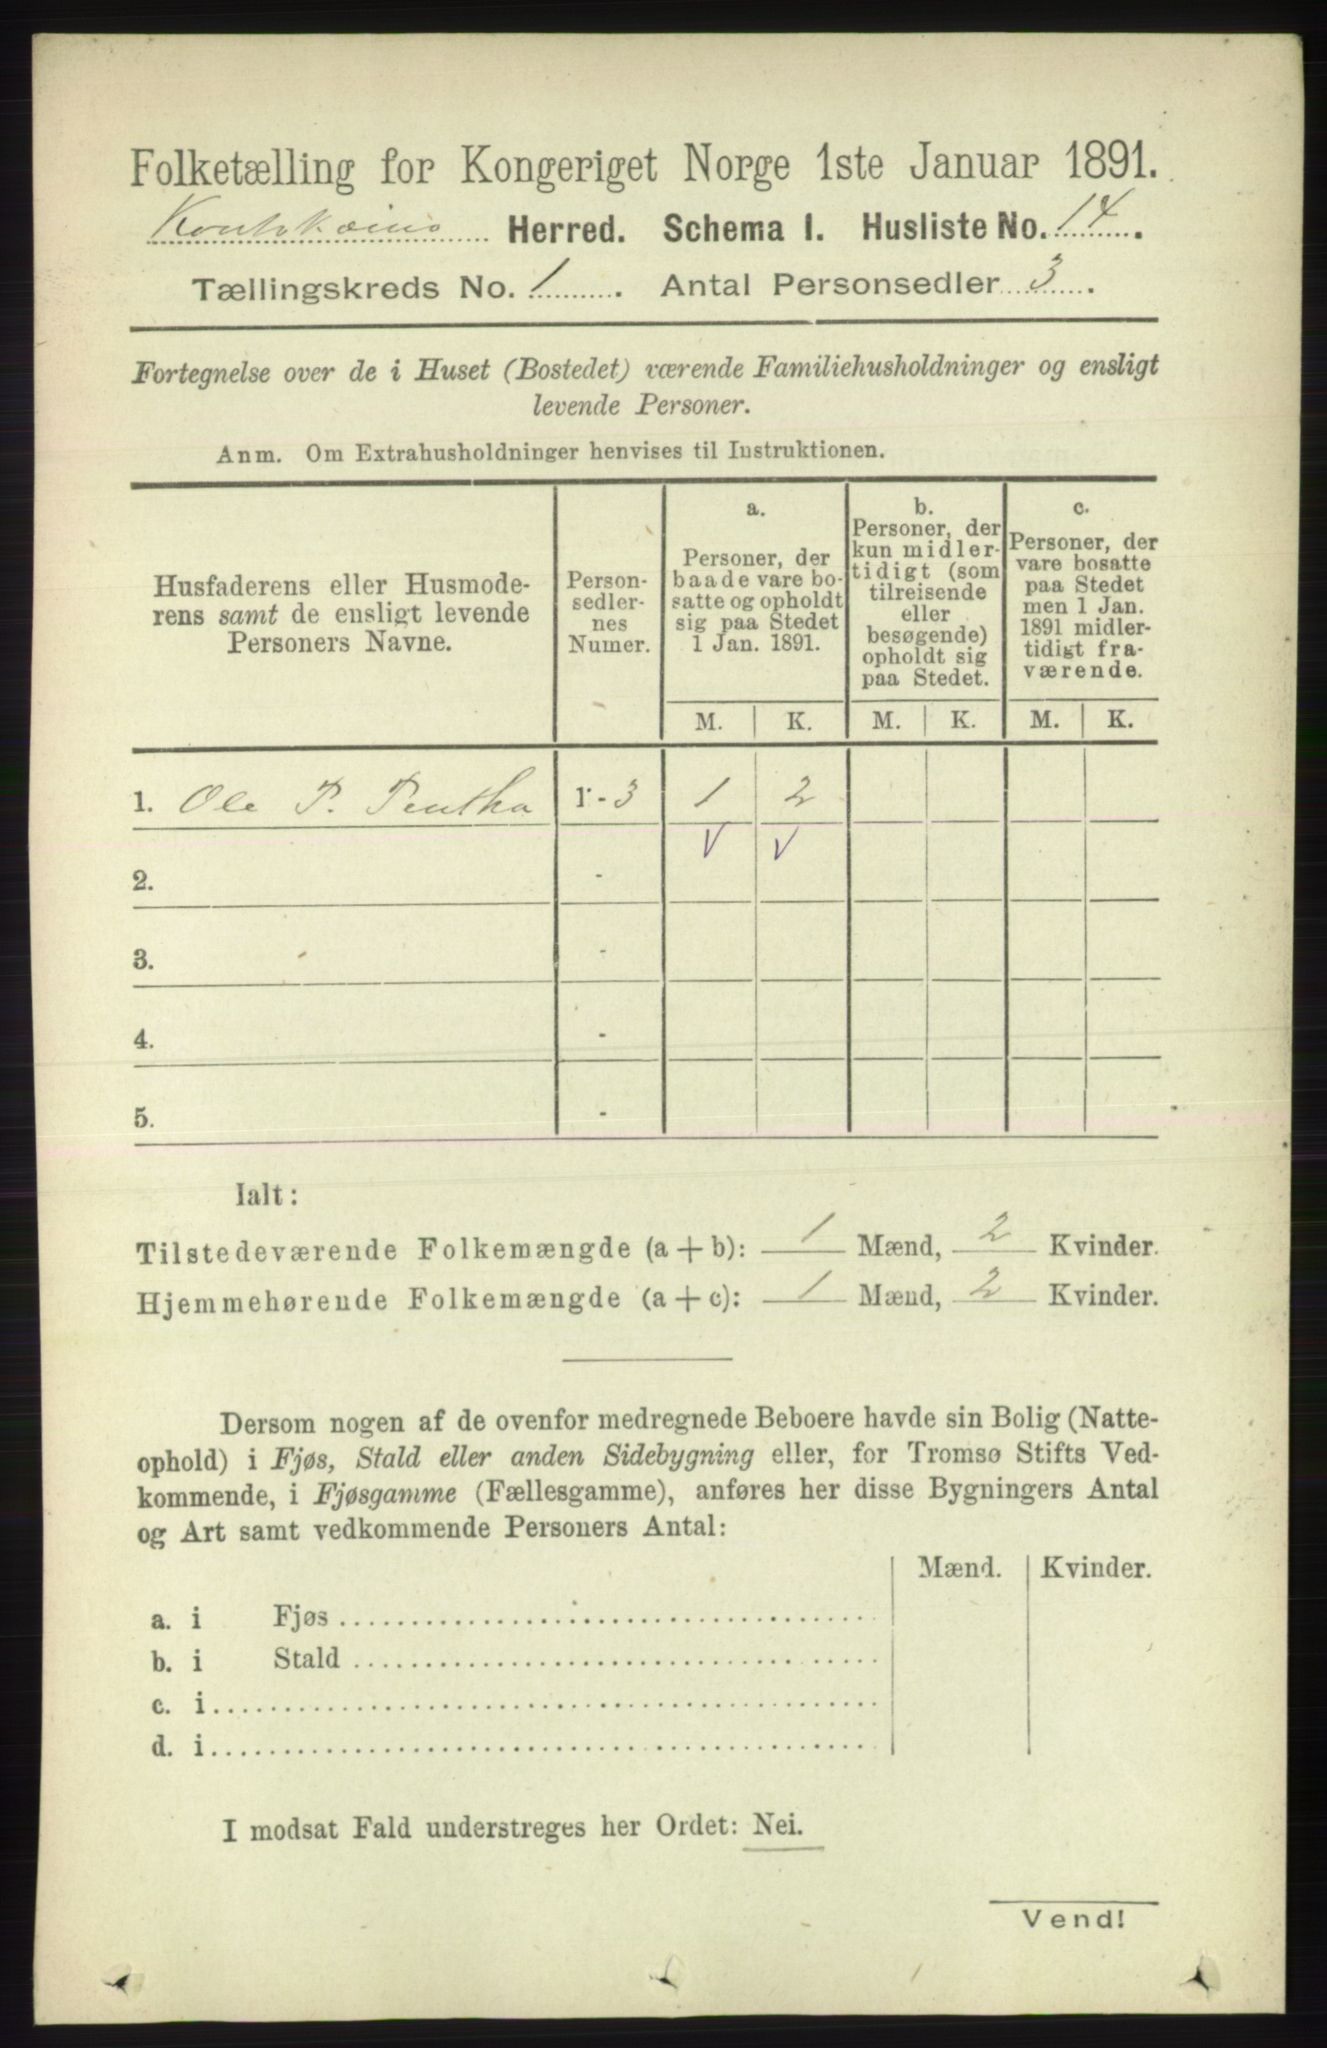 Folketælling for Kongeriget Norge 1ste Januar 1891.
Koutokæino Herred. Schema I. Husliste No. 14.
Tællingskreds No. 1. Antal Personsedler 3.
Fortegnelse over de i Huset (Bostedet) værende Familiehusholdninger og ensligt
levende Personer.
Anm. Om Extrahusholdninger henvises til Instruktionen.
Husfaderens eller Husmode-
rens samt de ensligt levende
Personers Navne.
Person-
sedler-
nes
Numer.
a.
Personer, der
baade vare bo-
satte og opholdt
sig paa Stedet
1 Jan. 1891.
b.
Personer, der
kun midler-
tidigt (som
tilreisende
eller
besøgende)
opholdt sig
paa Stedet.
c.
Personer, der
vare bosatte
paa Stedet
men 1 Jan.
1891 midler-
tidigt fra-
værende.
M. K. M. K. M. K.
1. Ole P. Pentha 1-3 1 2
V V
2. -
3. -
4. -
5. -
Ialt:
Tilstedeværende Folkemængde (a + b): 1 Mænd, 2 Kvinder.
Hjemmehørende Folkemængde (a + c): 1 Mænd, 2 Kvinder.
Dersom nogen af de ovenfor medregnede Beboere havde sin Bolig (Natte-
ophold) i Fjøs, Stald eller anden Sidebygning eller, for Tromsø Stifts Ved-
kommende, i Fjøsgamme (Fællesgamme), anføres her disse Bygningers Antal
og Art samt vedkommende Personers Antal:
Mænd. Kvinder.
a. i Fjøs
b. i Stald
c. i
d. i
I modsat Fald understreges her Ordet: Nei.
Vend!